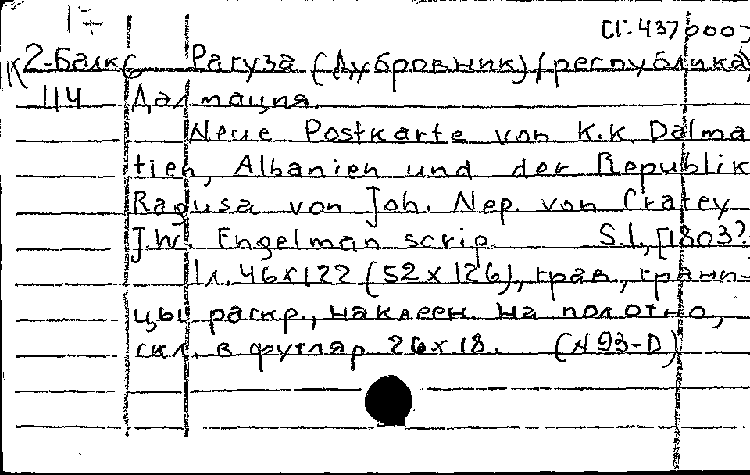 СГ.437000
К 2-Балк Рагуза (Дубровник), республика
114 Далмация.
Neue Postkarte von K.K. Dalma
tien, Albanien und der Republik
Ragusa von Joh. Nep. von Cratey
J.W. Engelman scrip. S.l., [1803?
1л. 46х122 (52х126), грав., грани-
цы раскр., наклеен. на полотно,
скл. в футляр 26х18. (N 93-D)